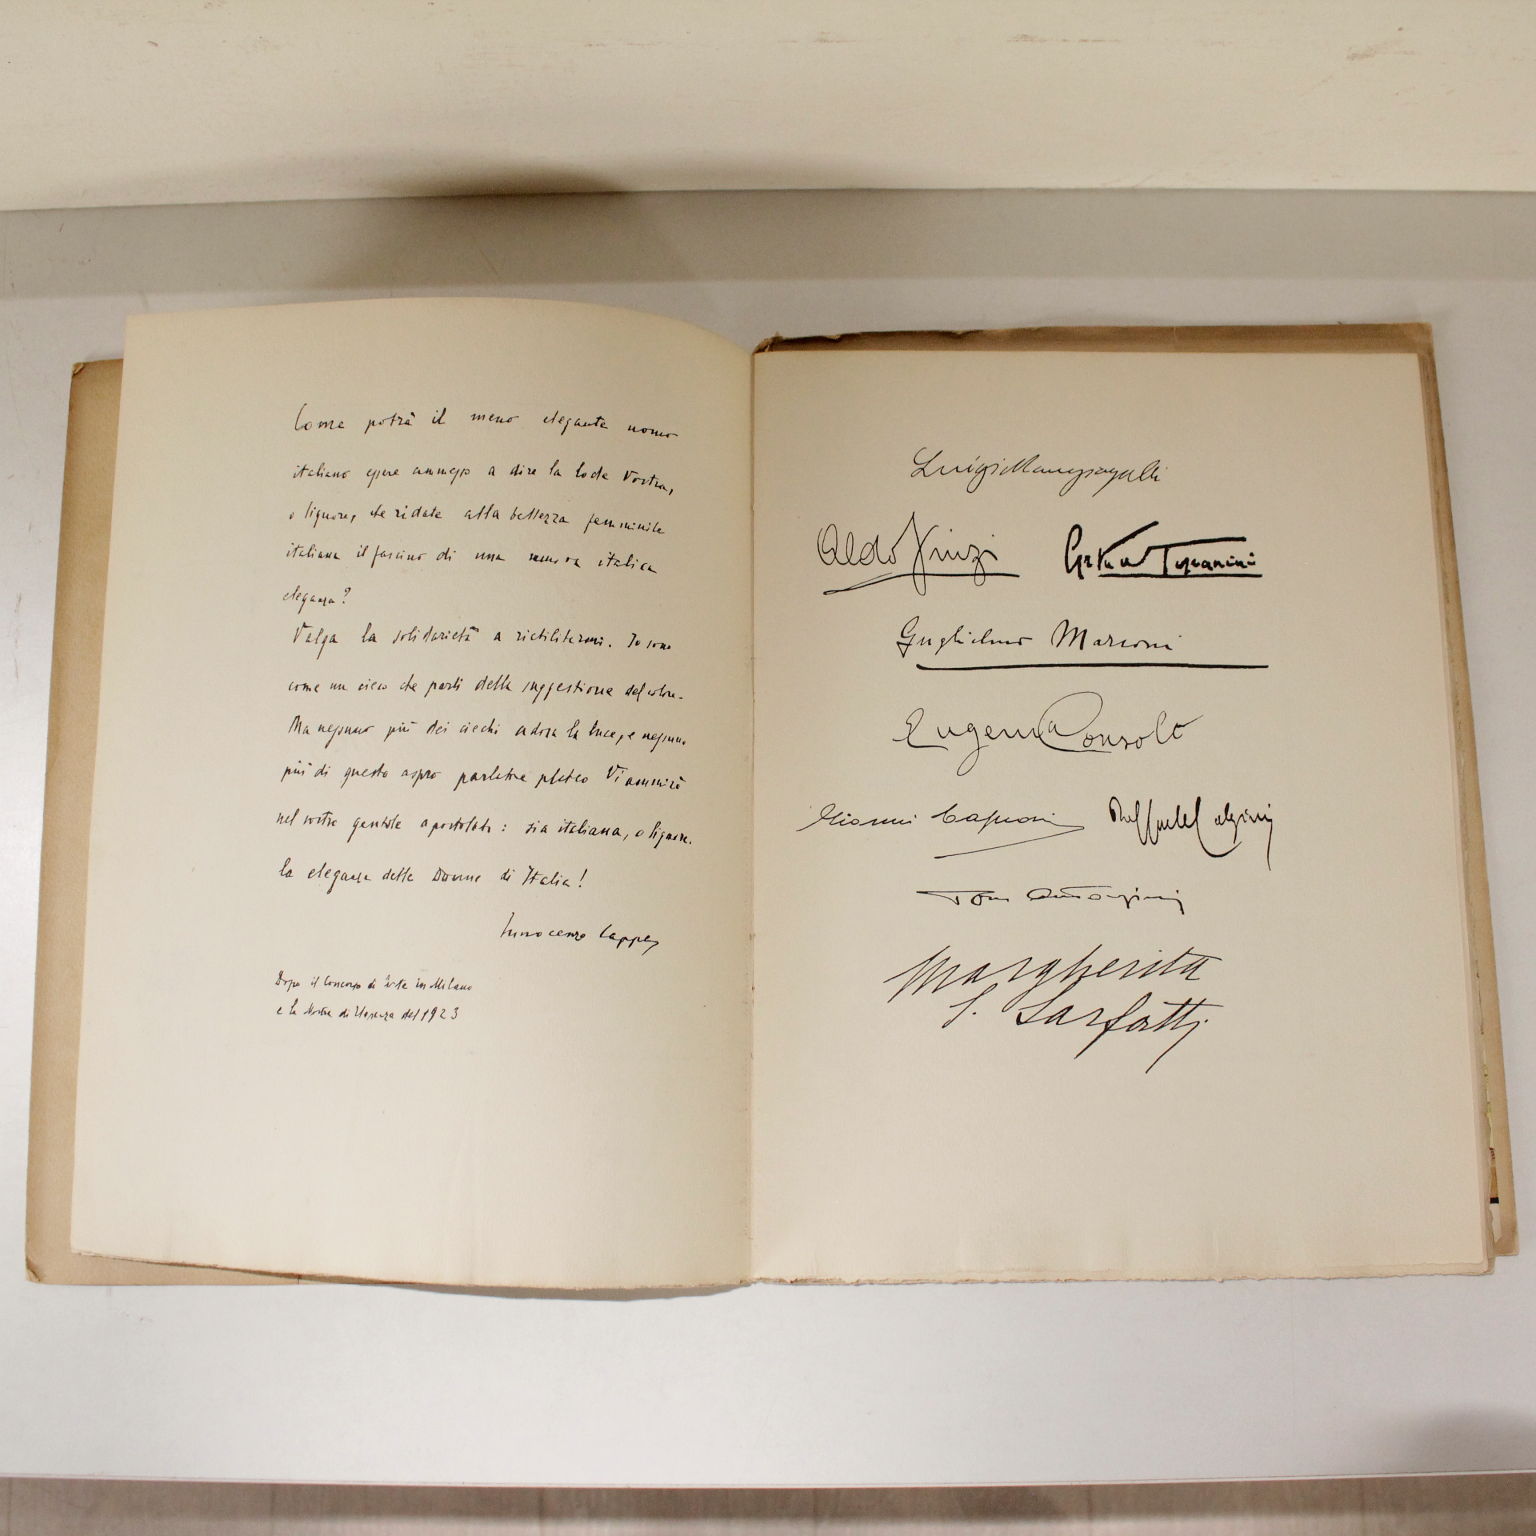 Come potrà il meno elegante uomo
italiano essere ammesso a dire la lode Vostra,
o Signore, che ridate alla bellezza femminile
italiana il fascino di una nuova italica
eleganza?
Valga la solidarietà a
Io sono
come un cieco che parli della suggestione del colore.
Ma nessuno più dei ciechi adora la luce, e nessuno
più di questo aspro parlatore plebeo Vi ammirò
nel vostro gentile apostolato: sia italiana, o Signore,
la eleganza delle Donne di Italia!
Innocenzo Cappa
Dopo il Concorso di in Milano
e la Mostra di del 1923
Luigi Mangiagalli
Aldo Finzi
Arturo Toscanini
Guglielmo Marconi
Eugenia Consolo
Gianni Caproni
Raffaele Calzini
Tom Antongini
Margherita
G. Sarfatti